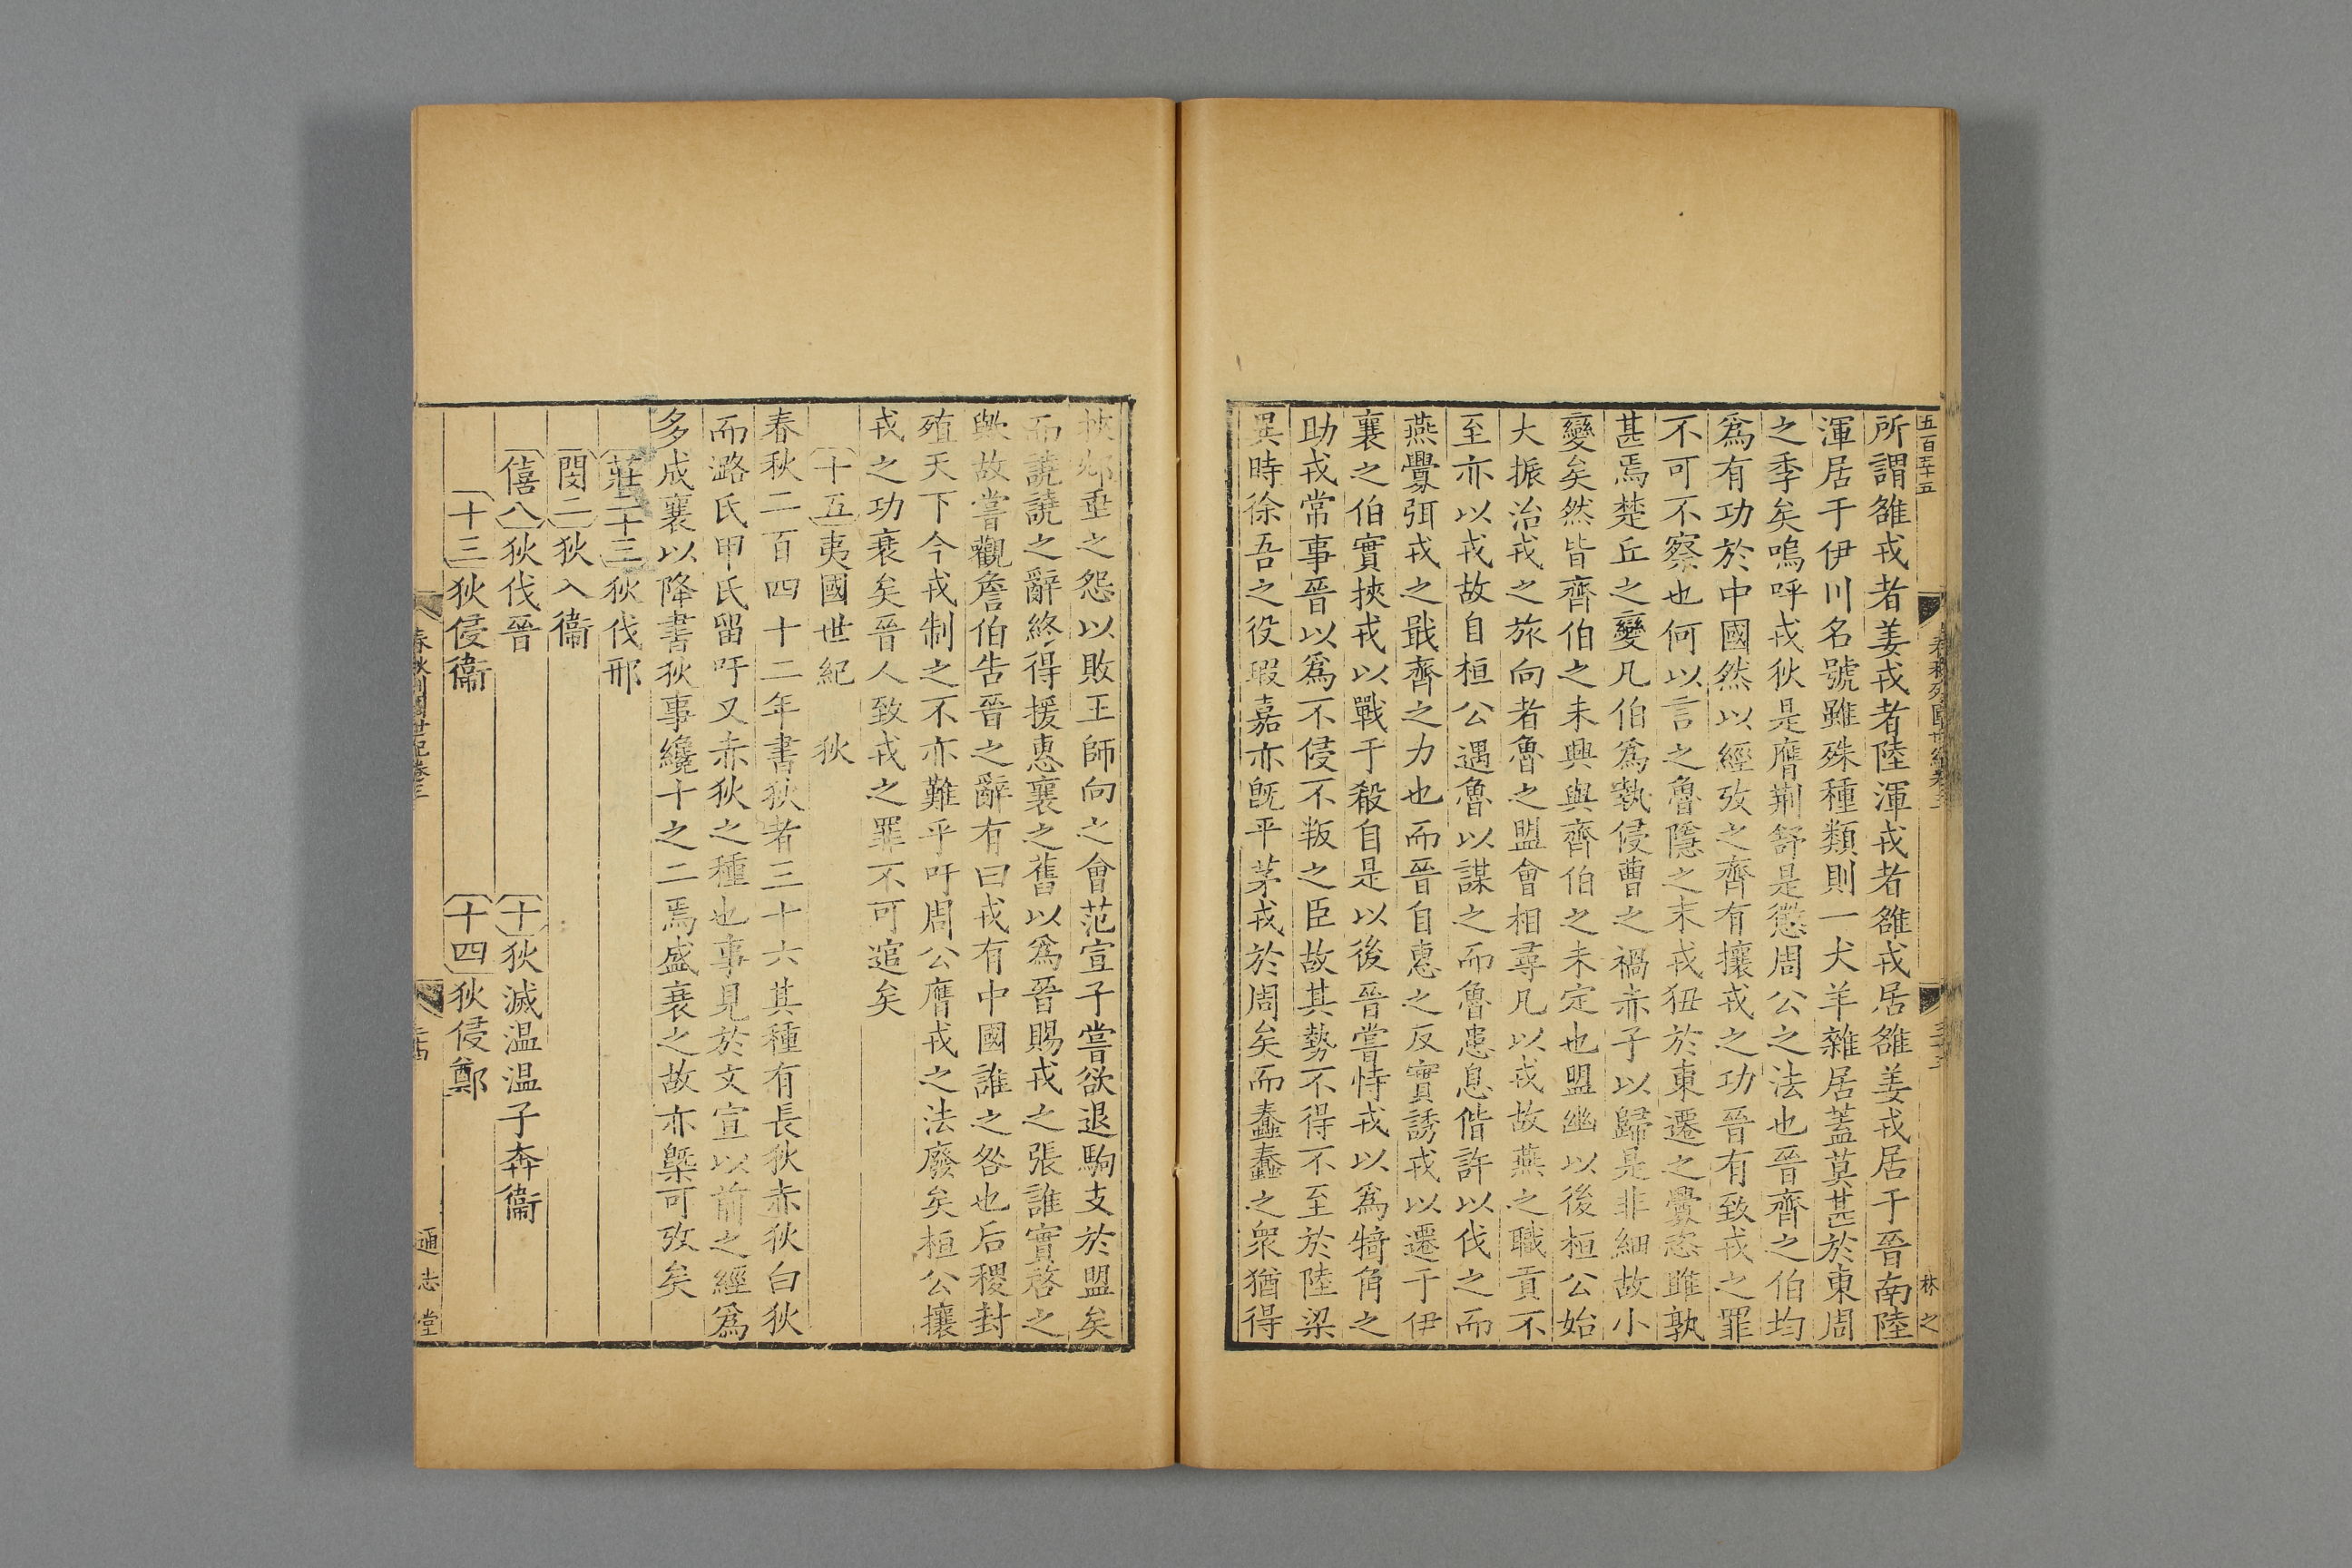 五百五十五
林之
所謂雒戎者姜戎者陸渾戎者雒戎居雒姜戎居于晉南陸
渾居于伊川名號雖殊種類則一犬羊雜居蓋莫甚於東周
之季矣嗚呼戎狄是膺荆舒是懲周公之法也晉齊之伯均
爲有功於中國然以經攷之齊有攘戎之功晉有致戎之罪
不可不察也何以言之魯隱之末戎狃於東遷之釁恣雎孰
甚焉楚丘之變凡伯爲執侵曹之禍赤子以歸是非細故小
變矣然皆齊伯之未興與齊伯之未定也盟幽以後桓公始
大振治戎之旅向者魯之盟會相尋凡以戎故燕之職貢不
至亦以戎故自桓公遇魯以謀之而魯患息偕許以伐之而
燕釁弭戎之戢齊之力也而晉自惠之反實誘戎以遷于伊
襄之伯實挾戎以戰于殽自是以後晉嘗恃戎以爲犄角之
助戎常事晉以爲不侵不叛之臣故其勢不得不至於陸梁
異時徐吾之役瑕嘉亦旣平茅戎於周矣而蠢蠢之衆猶得
挾邲垂之怨以敗王師向之會范宣子嘗欲退駒支於盟矣
而譊譊之辭終得援惠襄之舊以爲晉賜戎之張誰實啓之
歟故嘗觀詹伯告晉之辭有曰戎有中國誰之咎也后稷封
殖天下今戎制之不亦難乎吁周公膺戎之法廢矣桓公攘
戎之功衰矣晉人致戎之罪不可逭矣
十五夷國世紀　狄
春秋二百四十二年書狄者三十六其種有長狄赤狄白狄
而潞氏甲氏留吁又赤狄之種也事見於文宣以前之經爲
多成襄以降書狄事纔十之二焉盛衰之故亦槩可攷矣
莊三十三狄伐邢
閔二狄入衞
僖八狄伐晉　十狄滅温温子奔衞
十三狄侵衞　十四狄侵鄭
春秋列國世紀卷三
通志堂